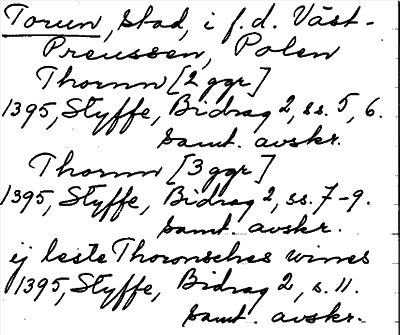 Torun, stad, i f.d. Väst-
Preussen, Polen
Thornn [2 ggr]
1395, Styffe, Bidrag 2, ss. 5, 6.
samt. avskr.
Thornn [3 ggr]
1395, Styffe, Bidrag 2, ss. 7-9.
samt. avskr.
ej beste Thoronsches wines
1395, Styffe, Bidrag 2, s. 11.
samt. avskr.